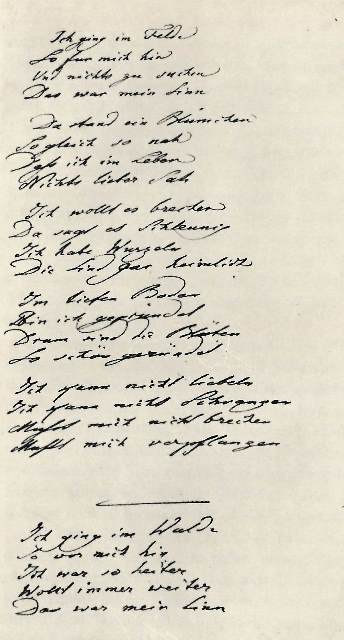 Ich ging im Felde
So fur mich hin
Und nichts zu suchen
Das war mein Sinn
Da stand ein Blümchen
Sogleich so nah
Daß ich im Leben
Nichts lieber sah
Ich wollt es brechen
Da sagt es schleunig
Ich habe Wurzeln
Die sind gar heimlich
Im tiefen Boden
Bin ich gegründet
Drum sind die Blüten
So schön geründet
Ich kann nicht liebeln
Ich kann nicht schranzen
Mußt mich nicht brechen
Mußt mich verpflanzen
Ich ging im Walde
So vor mich hin
Ich war so heiter
Wollt immer weiter
Das war mein Sinn